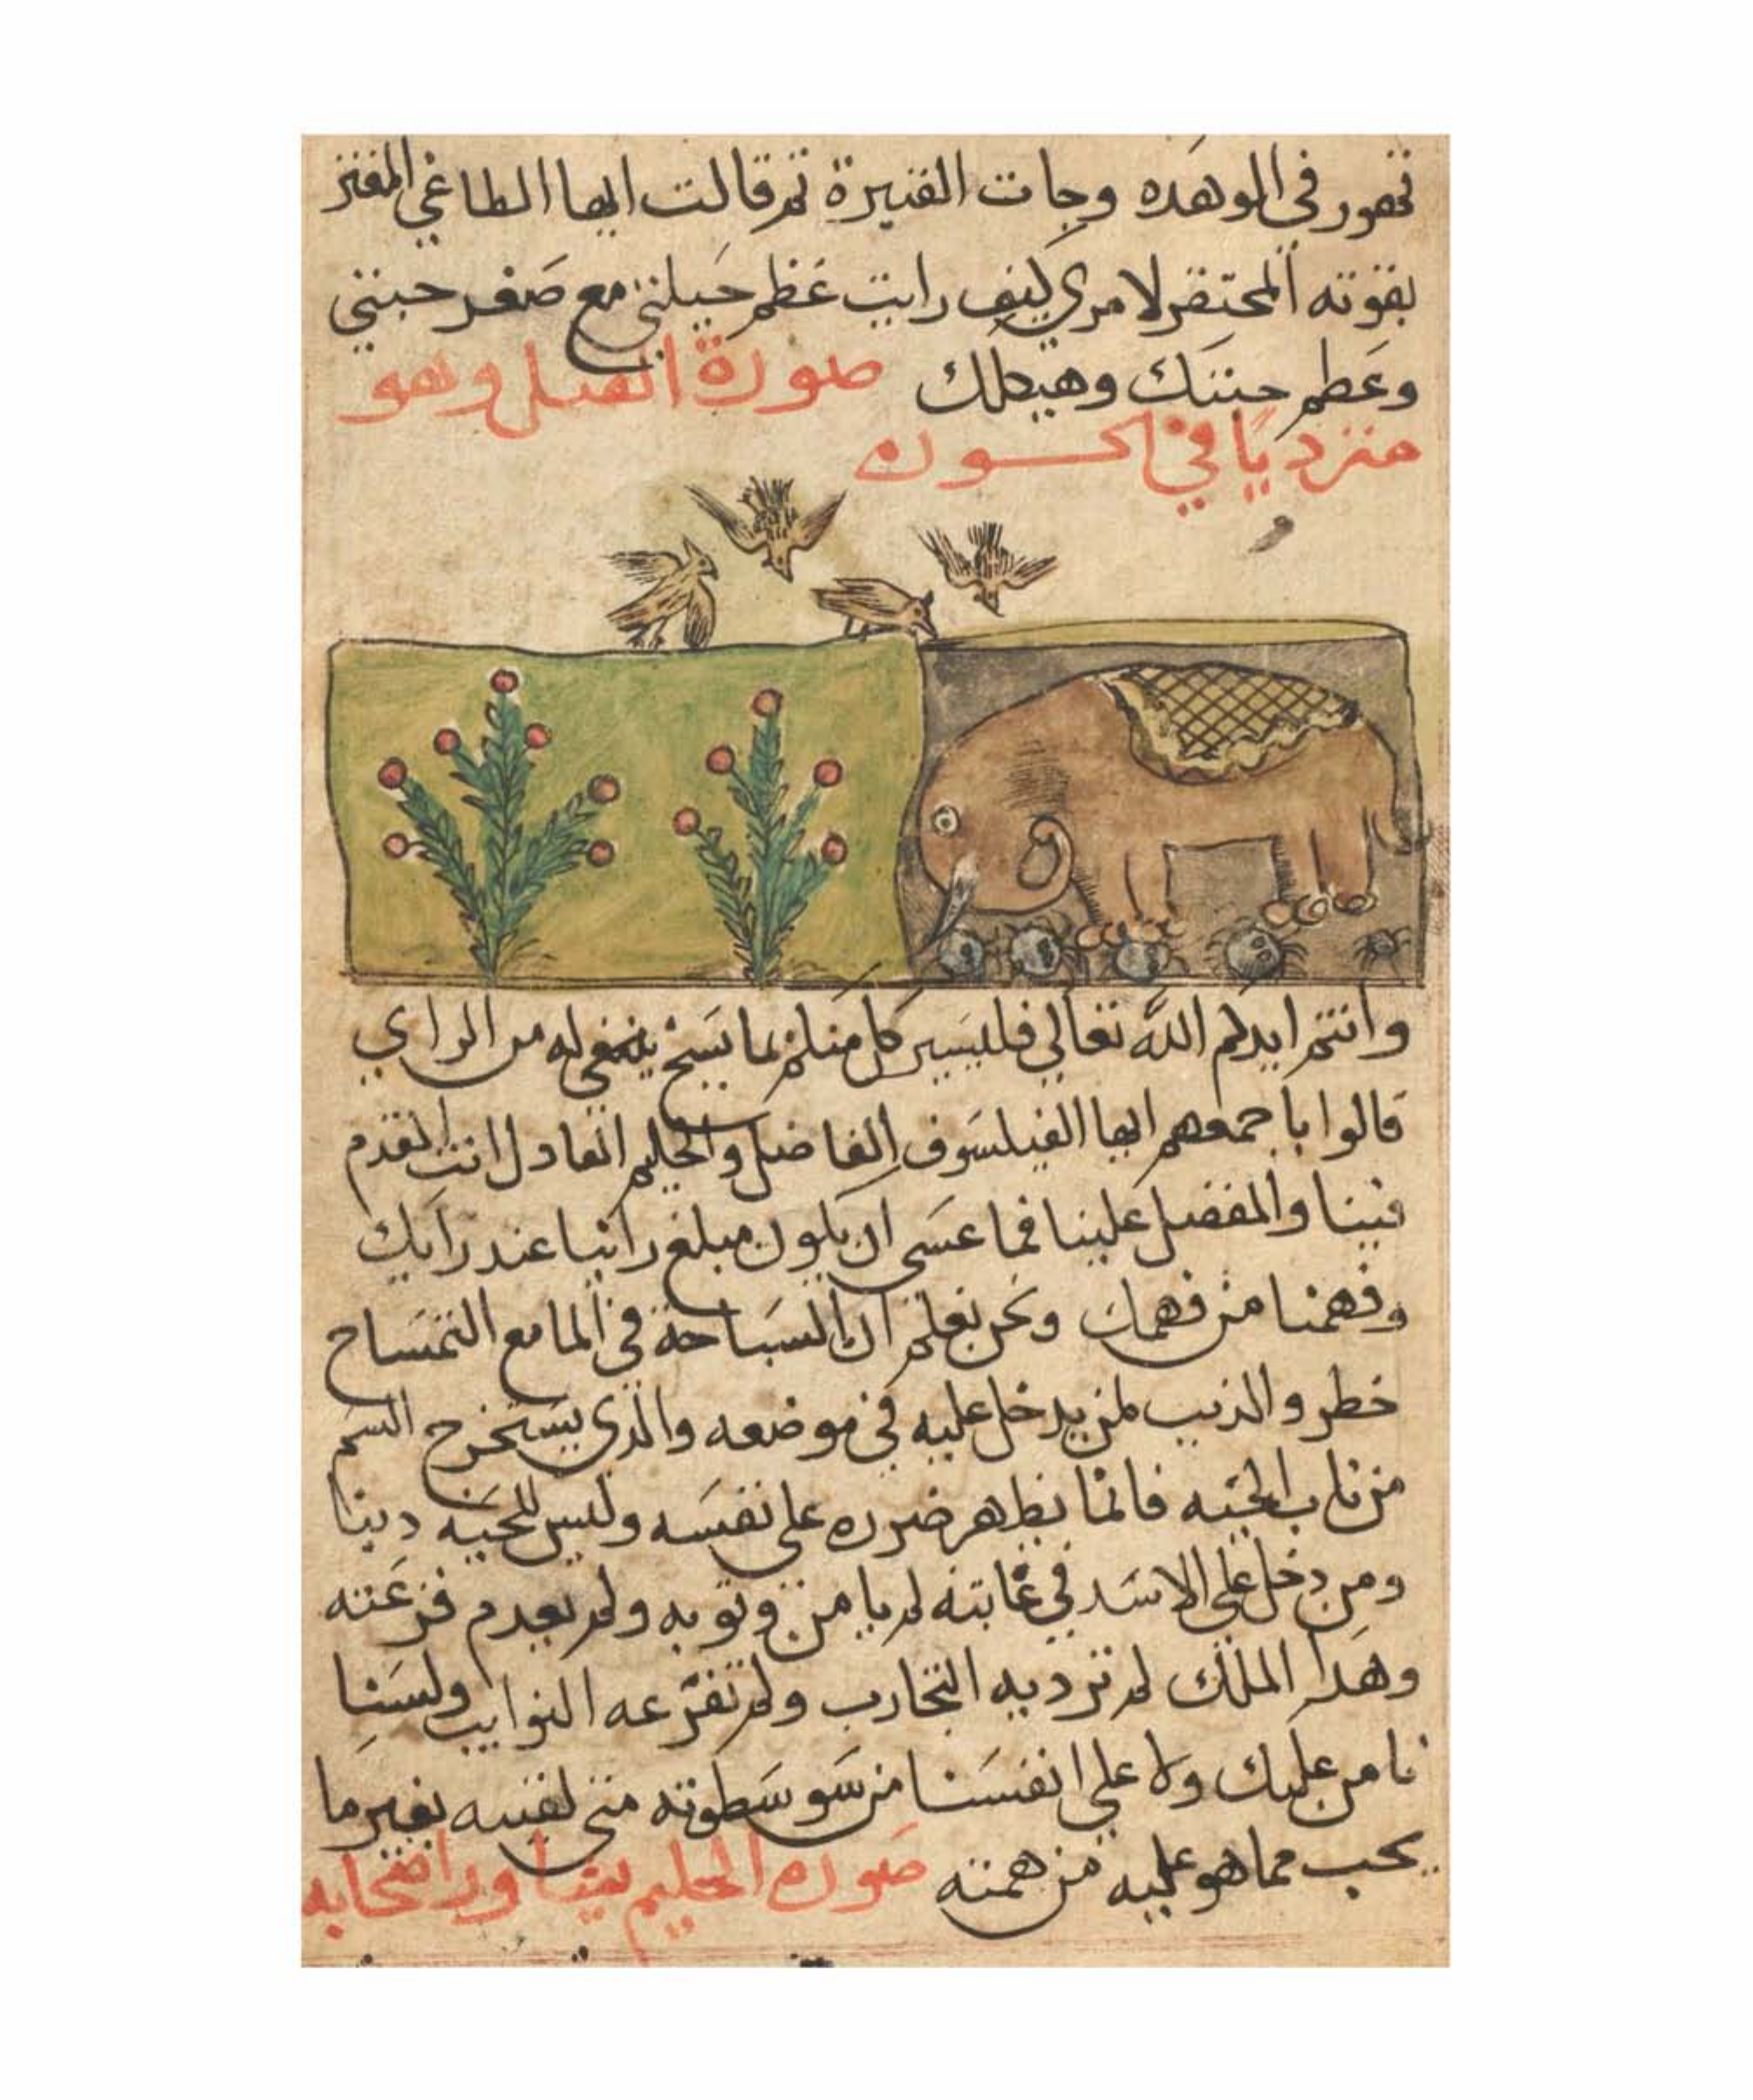 تهور فى الوهده وجات القنبرة ثم قالت ايها الطاغي المغتر
بقوته المحتقر لامري كيف رايت عظم حيلتي مع صغر جثتي
وعظم جثتك وهيكلك صورة الفيل وهو
متردياً في الحسوره
وانتم ايدكم الله تعالى فليسير كل منكم بما يسنح له من الراي
قالوا باجمعهم ايها الفيلسوف الفاضل والحكيم العادل انت المقدم
فينا والمفضل علينا فما عسى ان يكون مبلغ راينا عند رايك
وفهمنا من فهمك ونحن نعلم ان السباحة في الما مع التمساح
خطر والذنب لمن يدخل عليه في موضعه والذي يستخرج السم
من ناب الحيه فانما يظهر ضرره على نفسه وليس للحيه دينا
ومن دخل على الاسد في غابته لم يامن وثوبه ولم يعدم فزعته
وهذا الملك لم تزد به التجارب ولم تفزعه النوايب ولسنا
نامن عليك ولا على انفسنا من سو سطوته متى لقيته بغير ما
يحب مما هو عليه من همته صوره الحكيم بيدبا واصحابه